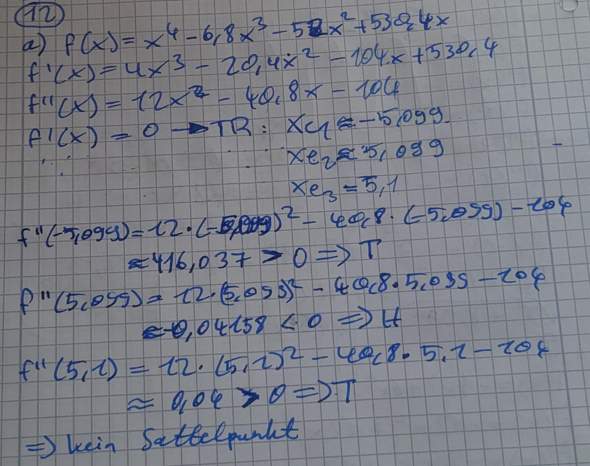 12
a) f(x) = x⁴ - 6,8x³ - 52x² + 530,4x
f'(x) = 4x³ - 20,4x² - 104x + 530,4
f''(x) = 12x² - 40,8x - 104
f'(x) = 0 → TR: xe1 ≈ -5,099
xe2 ≈ 5,099
xe3 = 5,1
f''(-5,099) = 12·(-5,099)² - 40,8·(-5,099) - 104
≈ 416,037 > 0 ⇒ T
f''(5,099) = 12·(5,099)² - 40,8·5,099 - 104
≈ -0,04158 < 0 ⇒ H
f''(5,1) = 12·(5,1)² - 40,8·5,1 - 104
≈ 0,04 > 0 ⇒ T
⇒ kein Sattelpunkt